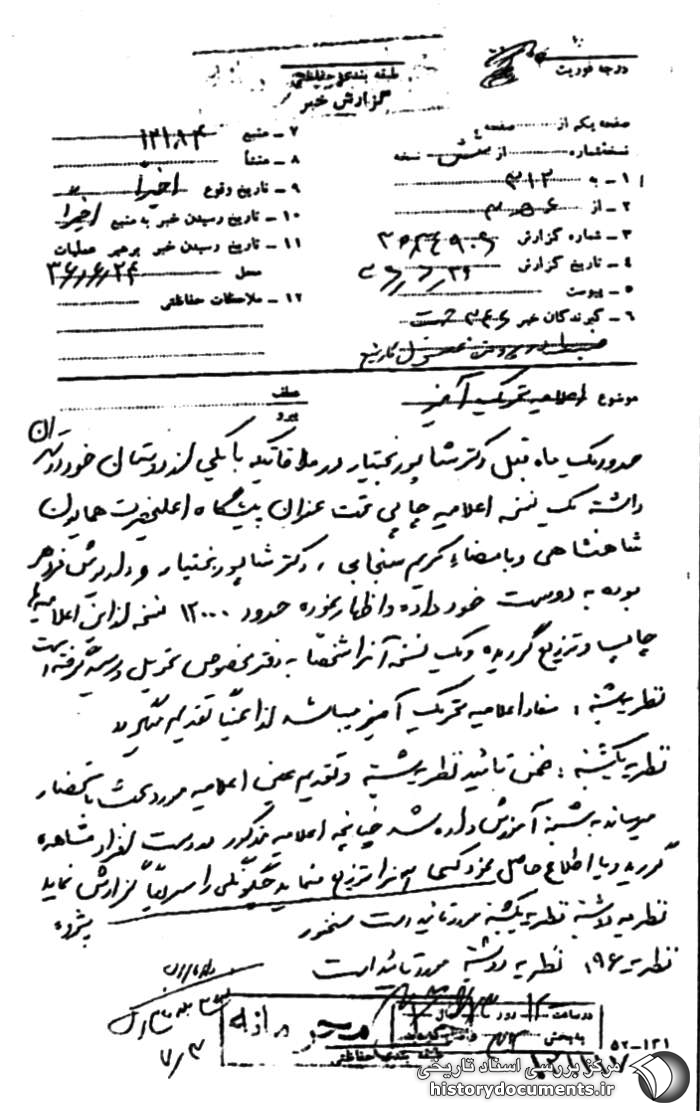 درجه فوریت
طبقه بندی حفاظتی
گزارش خبر
صفحه یکم از صفحه
نسخه شماره از نسخه
۱ - به ۳۱۲
۲ - از
۳ - شماره گزارش
۴ - تاریخ گزارش
۵ - پیوست
۶ - گیرندگان خبر
۷ - منبع
۸ - منشأ
۹ - تاریخ وقوع اخیراً
۱۰ - تاریخ رسیدن خبر به منبع اخیراً
۱۱ - تاریخ رسیدن خبر برهبر عملیات
محل ۳۶/۶/۲۴
۱۲ - ملاحظات حفاظتی
موضوع اعلامیه تحریک آمیز
عطف
پیرو
حدود یک ماه قبل دکتر شاپور بختیار در ملاقاتیکه با یکی از دوستان خود در تهران
داشته یک نسخه اعلامیه چاپی تحت عنوان پیشگاه اعلیحضرت همایون
شاهنشاهی و بامضاء کریم سنجابی ، دکتر شاپور بختیار و داریوش فروهر
بوده به دوست خود داده و اظهار نموده حدود ۱۲۰۰۰ نسخه از این اعلامیه‌ها
چاپ و توزیع گردیده و یک نسخه آنرا شخصاً به دفتر مخصوص تحویل و رسید گرفته است
نظریه شنبه : مفاد اعلامیه تحریک آمیز میباشد لذا عیناً تقدیم میگردد
نظریه یکشنبه : ضمن تائید نظریه شنبه و تقدیم عین اعلامیه مورد بحث باستحضار
میرساند به شنبه آموزش داده شد چنانچه اعلامیه مذکور در دست افراد مشاهده
گردید و یا اطلاع حاصل نمود کسی آنرا توزیع مینماید چگونگی را سریعاً گزارش نماید
نظریه دوشنبه نظریه یکشنبه مورد تائید است
نظریه نظریه دوشنبه مورد تائید است
در ساعت روز سال
به بخش
طبقه بندی حفاظتی
۵۲-۱۳۱
مرکز بررسی اسناد تاریخی
historydocuments.ir